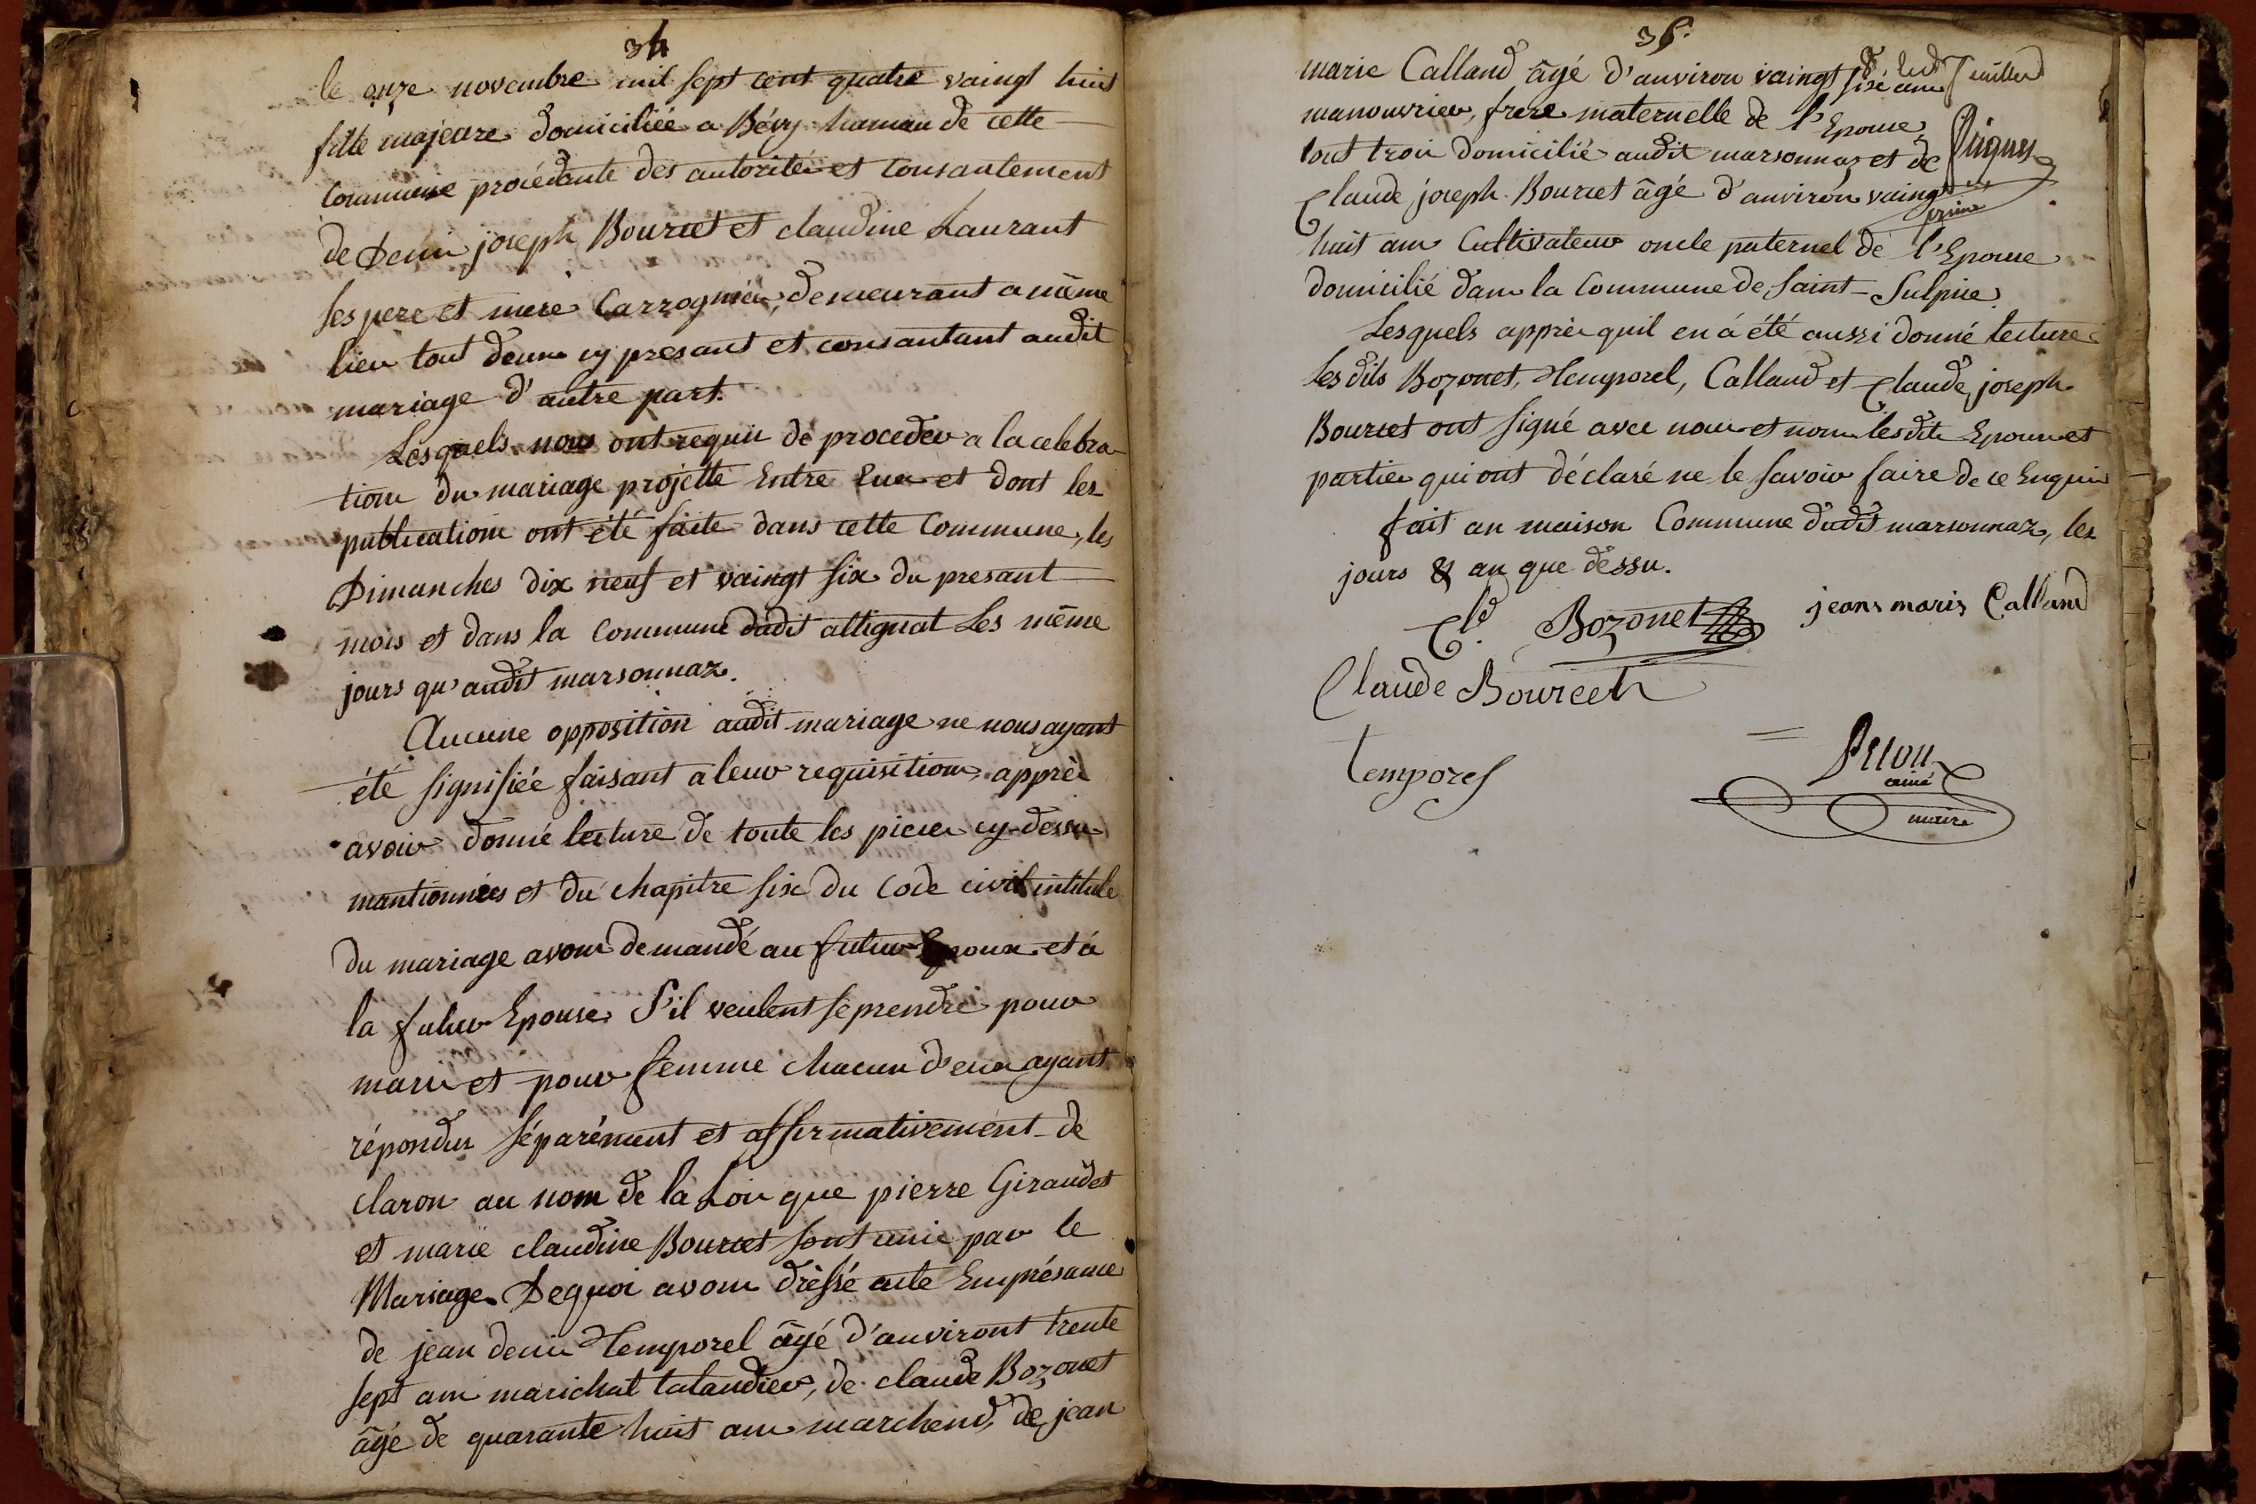 34
le onze novembre mil sept cent quatre vaingt huit
fille majeure domiciliée a Bévy hamau de cette
Commune procédante des autorités et consantement
de Denis joseph Bourcet et claudine Laurant
ses pere et mere Carzognien, demeurant a même
lieu tout deux cy presant et consantant audit
mariage d'autre part.
Lesquels nous ont requis de proceder a la celebra
tions du mariage projetté Entre Eux et dont les
publications ont été faite dans cette Commune, les
Dimanches dix neuf et vaingt six du presant
mois et dans la Commune dudit attignat Les même
jours qu'audit marsonnaz.
Aucune opposition audit mariage ne nous ayant
été signifiée faisant a leur requisitions, apprès
avoir donné lecture de toute les pieces cy-dessus
mantionnées et du chapitre six du Code civil intitulé
du mariage avons demandé au futur Epoux et à
la futur Epouse S'il veulent se prendre pour
mari et pour femme chacun d'eux ayant
répondus séparément et affirmativement de
claron au nom de la Loix que pierre Giraudet
et marie claudine Bourcet sont unis par le
Mariage. Dequoi avons dréssé acte En présance
de jean denis Temporel âgé d'auviront trente
sept ans marichal talandier, de claude Bozonet
âgé de quarante huit ans marchend, de jean
35.
marie Calland âgé d'anviron vaingt sixe ans
manouvrier, frere maternelle de l'Epouse
tout trois domicilié audit marsonnaz et de
Claude joseph Bourcet âgé d'anviron vaingt
huit ans Cultivateur oncle paternel de l'Epouse
domicilié dans la Commune de Saint-Sulpice
Lesquels apprès quil en à été aussi donné lecture
les dits Bozonet, Temporel, Calland et Claude joseph
Bourcet ont signé avec nous et non lesdits Epoux et
parties qui ont déclaré ne le savoir faire de ce Enquis
fait an maison Commune dudit marsonnaz, les
jours & an que dessu.
Cld. Bozonet
jean maris Calland
Claude Bourcet
temporel
ainé
maire